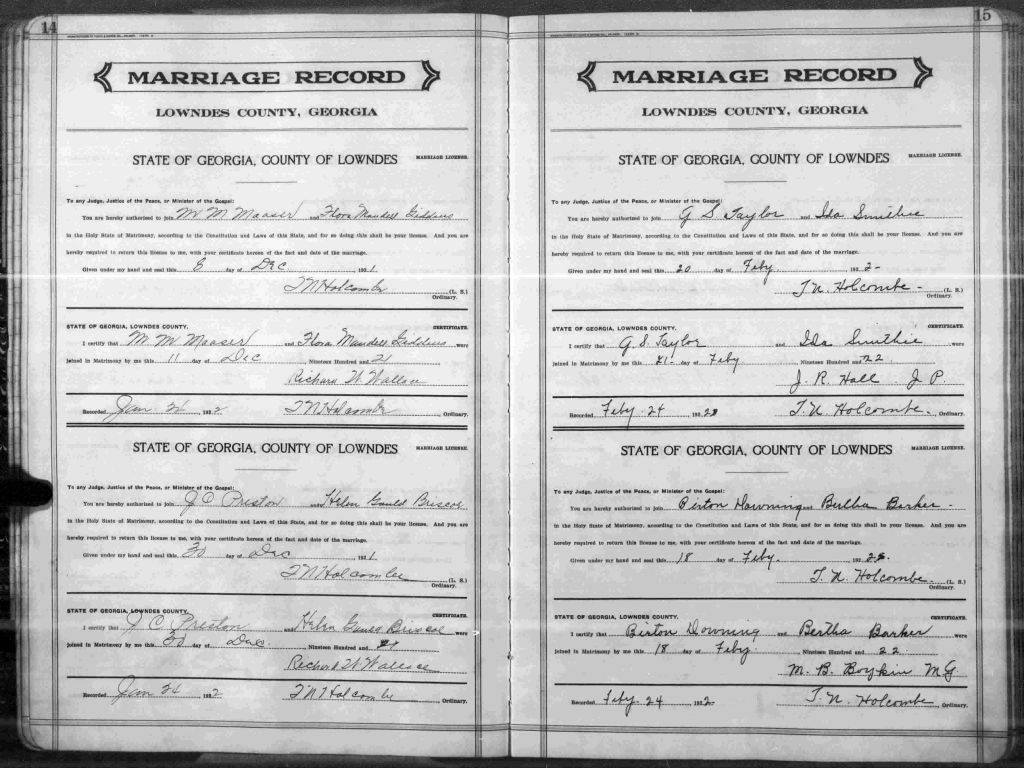 14
MARRIAGE RECORD
LOWNDES COUNTY, GEORGIA
STATE OF GEORGIA, COUNTY OF LOWNDES MARRIAGE LICENSE.
To any Judge, Justice of the Peace, or Minister of the Gospel:
You are hereby authorized to join M M Maaser and Flora Mandell Giddens
in the Holy State of Matrimony, according to the Constitution and Laws of this State, and for so doing this shall be your license. And you are
hereby required to return this license to me, with your certificate hereon of the fact and date of the marriage.
Given under my hand and seal this 6 day of Dec 1921
T N Holcombe (L. S.)
Ordinary.
STATE OF GEORGIA, LOWNDES COUNTY. CERTIFICATE.
I certify that M. M Maaser and Flora Mandell Giddens were
joined in Matrimony by me this 11 day of Dec Nineteen Hundred and 21
Richard W. Wallace
Recorded Jan 24, 1922 T N Holcombe Ordinary.
STATE OF GEORGIA, COUNTY OF LOWNDES MARRIAGE LICENSE.
To any Judge, Justice of the Peace, or Minister of the Gospel:
You are hereby authorized to join J C Preston Helen Gauld Briscoe
in the Holy State of Matrimony, according to the Constitution and Laws of this State, and for so doing this shall be your license. And you are
hereby required to return this license to me, with your certificate hereon of the fact and date of the marriage.
Given under my hand and seal this 30 day of Dec 1921
T N Holcombe (L. S.)
Ordinary.
STATE OF GEORGIA, LOWNDES COUNTY. CERTIFICATE.
I certify that J. C Preston and Helen Briscoe were
joined in Matrimony by me this 30 day of Dec. Nineteen Hundred and
Richard W Wallace
Recorded Jan 24, 1922 T N Holcombe Ordinary.
15
MARRIAGE RECORD
LOWNDES COUNTY, GEORGIA
STATE OF GEORGIA, COUNTY OF LOWNDES MARRIAGE LICENSE.
To any Judge, Justice of the Peace, or Minister of the Gospel:
You are hereby authorized to join G S Taylor and Ida Smithie
in the Holy State of Matrimony, according to the Constitution and Laws of this State, and for so doing this shall be your license. And you are
hereby required to return this license to me, with your certificate hereon of the fact and date of the marriage.
Given under my hand and seal this 20 day of Feby 1922
T. N. Holcombe (L. S.)
Ordinary.
STATE OF GEORGIA, LOWNDES COUNTY. CERTIFICATE.
I certify that G. S. Taylor and Ida Smithie were
joined in Matrimony by me this 21 day of Feby Nineteen Hundred and 22
J. R. Hall J P.
Recorded Feby 24, 1922 T. N. Holcombe Ordinary.
STATE OF GEORGIA, COUNTY OF LOWNDES MARRIAGE LICENSE.
To any Judge, Justice of the Peace, or Minister of the Gospel:
You are hereby authorized to join Birton Downing and Bertha Barker
in the Holy State of Matrimony, according to the Constitution and Laws of this State, and for so doing this shall be your license. And you are
hereby required to return this license to me, with your certificate hereon of the fact and date of the marriage.
Given under my hand and seal this 18 day of Feby. 1922
T. N. Holcombe (L. S.)
Ordinary.
STATE OF GEORGIA, LOWNDES COUNTY. CERTIFICATE.
I certify that Birton Downing and Bertha Barker were
joined in Matrimony by me this 18 day of Feby. Nineteen Hundred and 22
M. B. Boykin M G
Recorded Feby 24, 1922 T. N. Holcombe Ordinary.